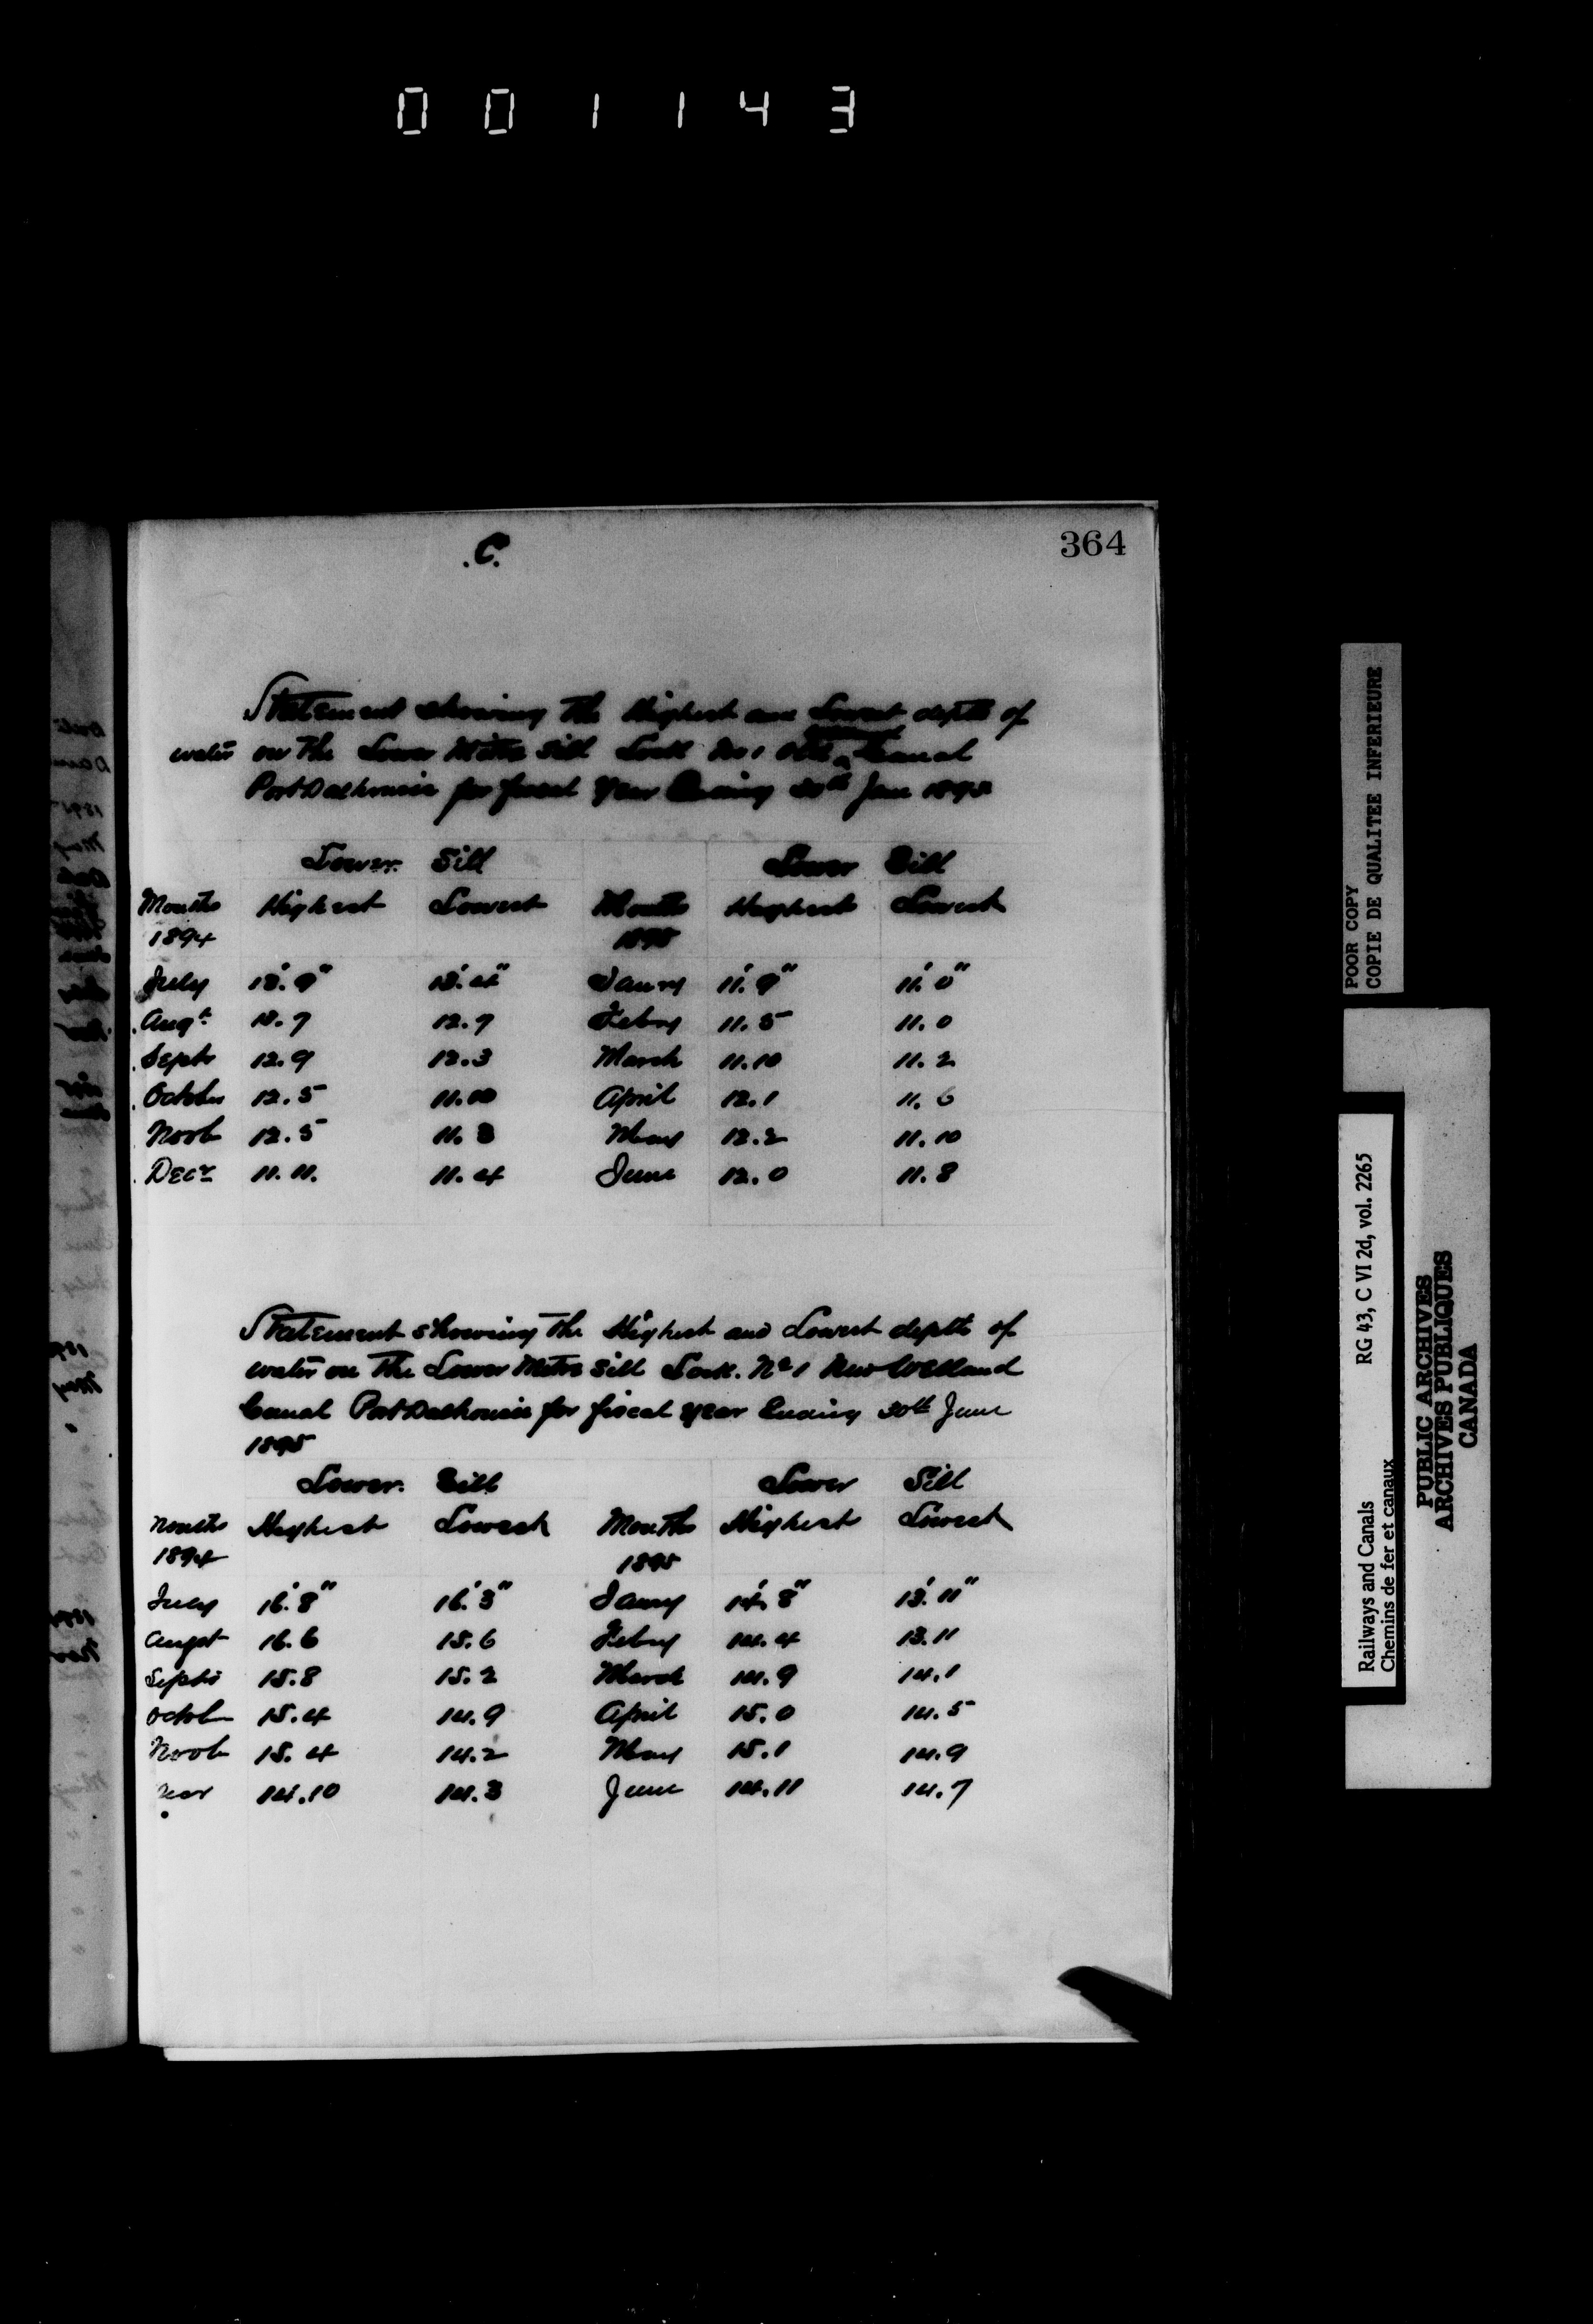 001143
364
.C.
Statement showing the Highest and Lowest depth of
water on the Lower Mitre Sill Lock No 1 Old Canal
Port Dalhousie for fiscal Year Ending 30th June 1895
Lower Sill Lower Sill
Months Highest Lowest Months Highest Lowest
1894 1895
July 13'.9" 13'.4" Jany 11'.9" 11'.0"
Augt. 12.7 Febry 11.5 11.0
Septr 12.9 12.3 March 11.10 11.2
October 12.5 11.10 April 12.1 11.6
Novb 12.5 11.3 May 12.2 11.10
Decr 11.11. 11.4 June 12.0 11.8
Statement showing The Highest and Lowest depth of
water on The Lower Mitre Sill Lock. No 1 New Welland
Canal Port Dalhousie for fiscal Year Ending 30th June
1895
Lower Sill Lower Sill
Months Highest Lowest Months Highest Lowest
1894 1895
July 16'.8" 16'.3" Jany 14'.8" 13'.11"
Augst 16.6 15.6 Febry 14.4 13.11
Septr 15.8 15.2 March 14.9 14.1
Octob 15.4 14.9 April 15.0 14.5
Novb 15.4 14.2 May 15.1 14.9
14.10 14.3 June 14.11 14.7
POOR COPY
COPIE DE QUALITEE INFERIEURE
Railways and Canals RG 43, C VI 2d, vol. 2265
Chemins de fer et canaux
PUBLIC ARCHIVES
ARCHIVES PUBLIQUES
CANADA